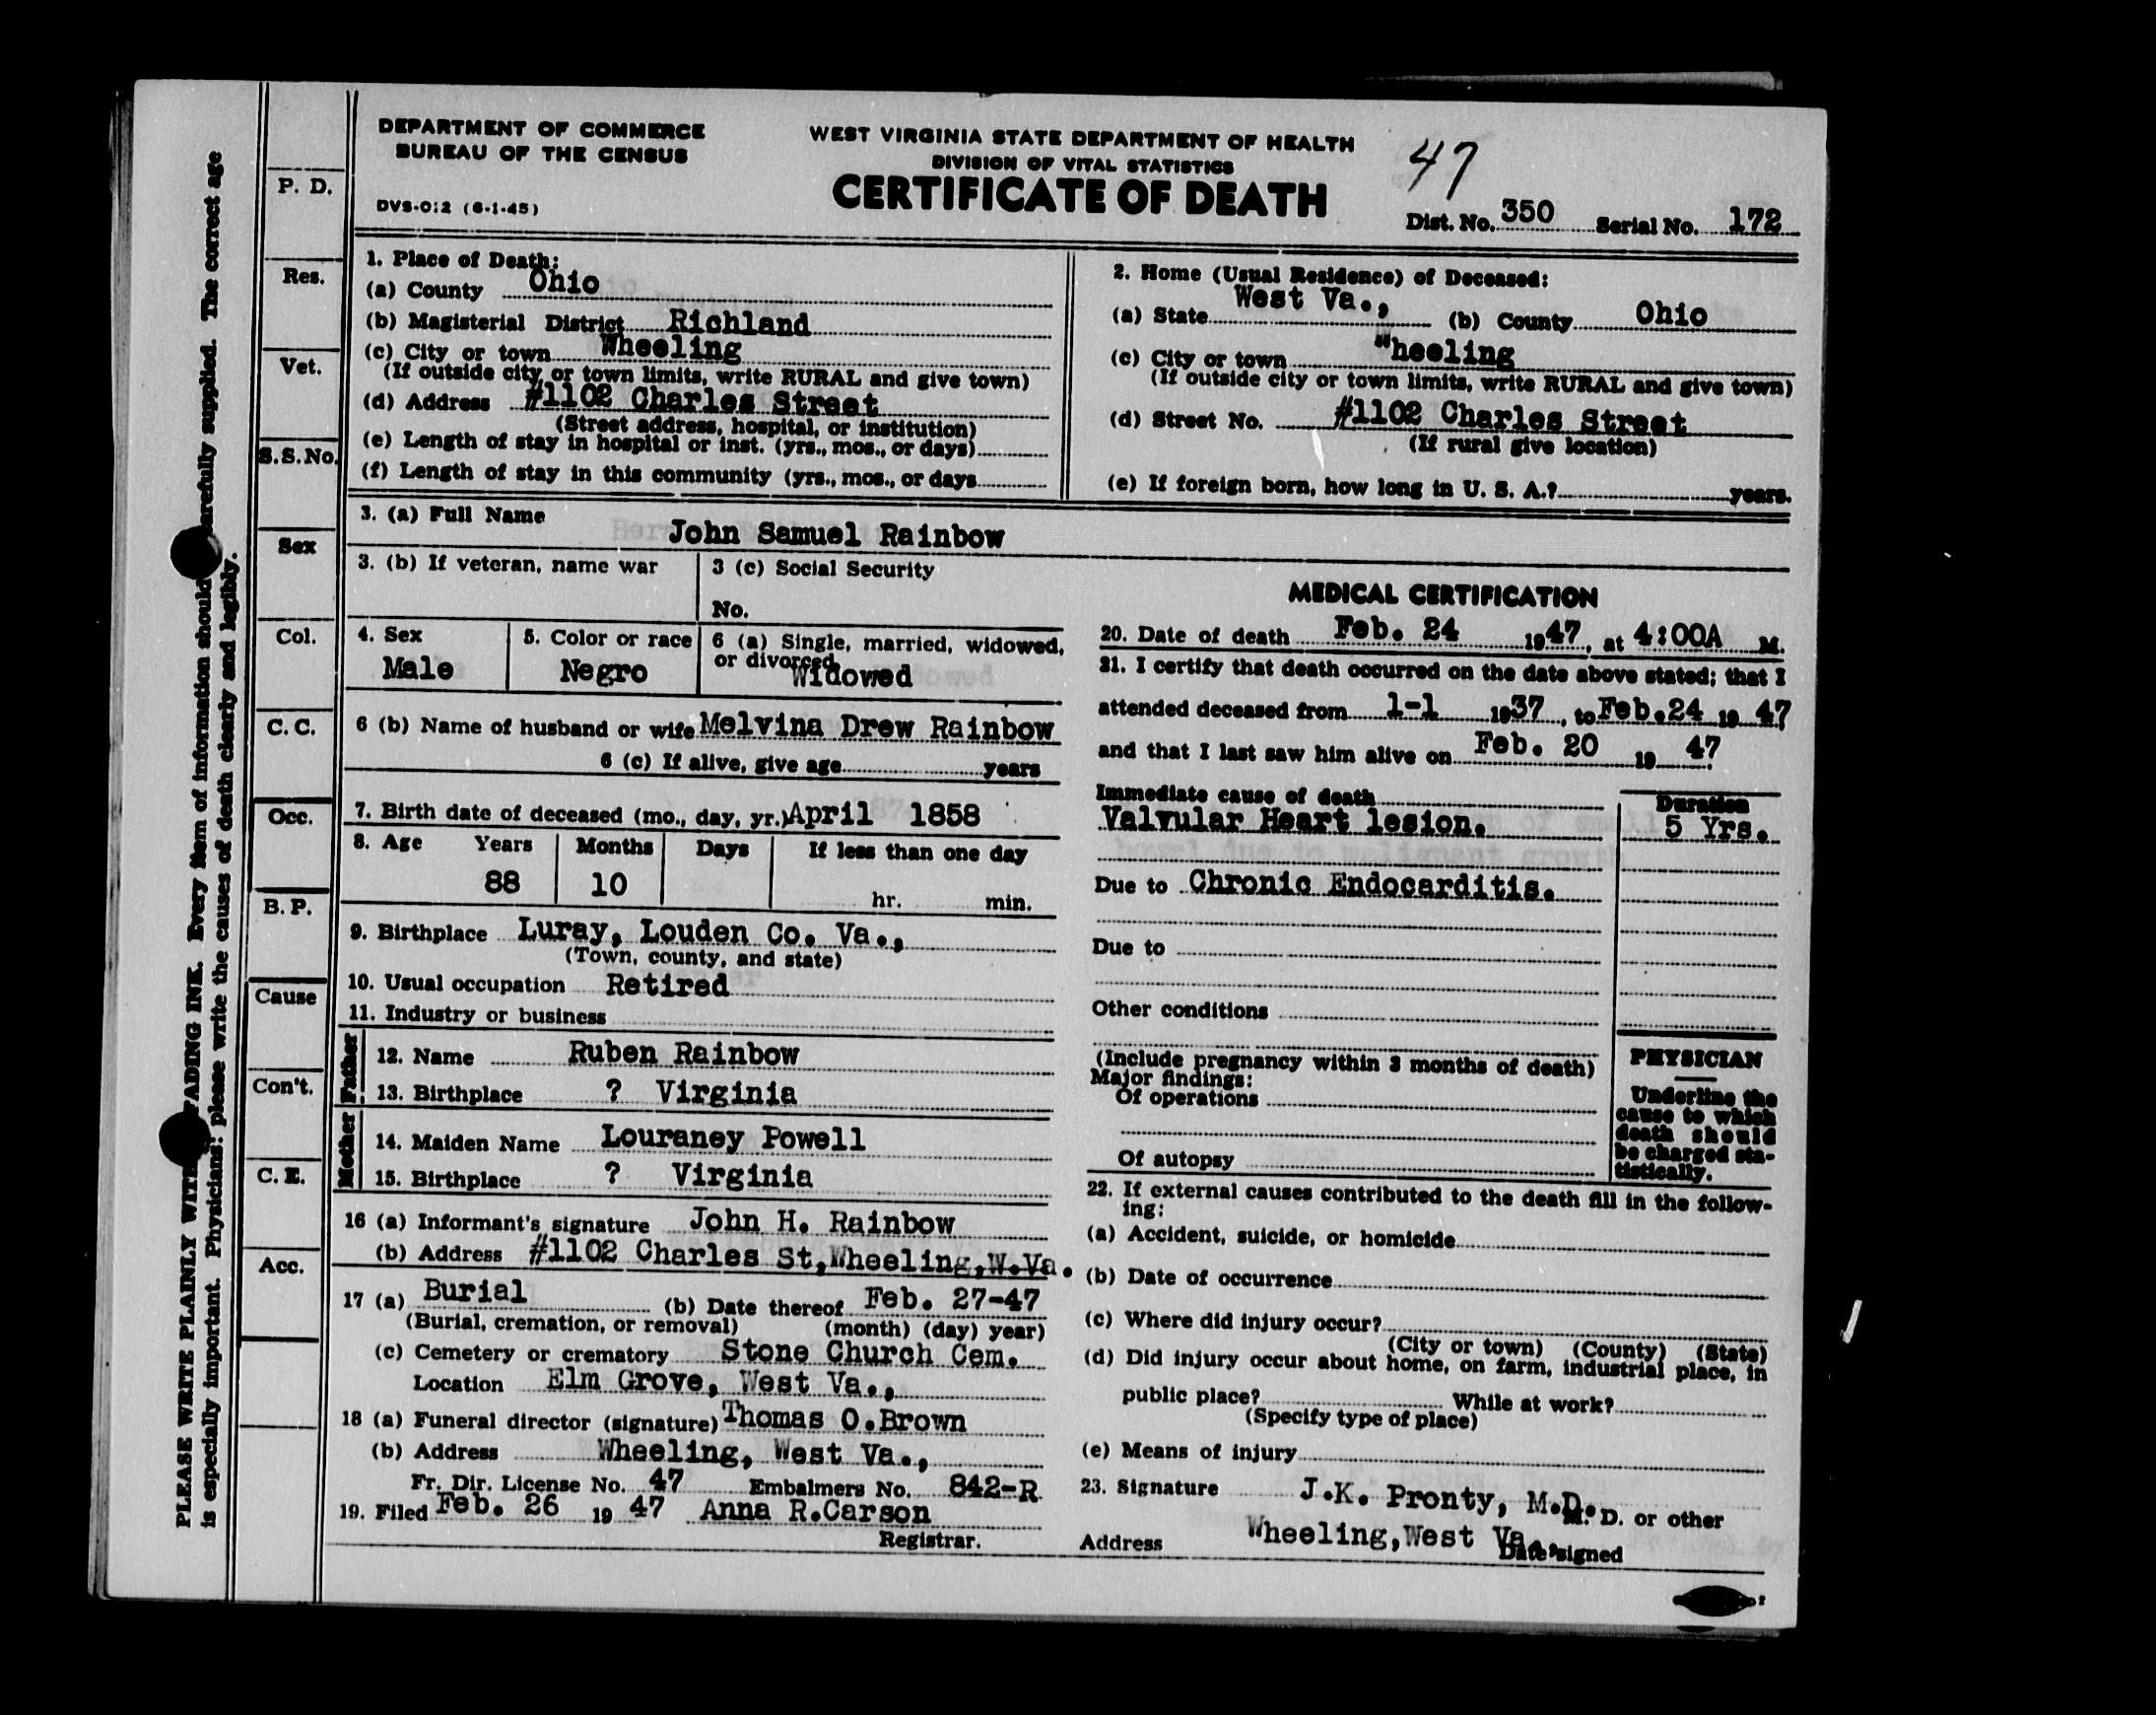 DEPARTMENT OF COMMERCE
BUREAU OF THE CENSUS
DVS-012 (6-1-45)
WEST VIRGINIA STATE DEPARTMENT OF HEALTH
DIVISION OF VITAL STATISTICS
CERTIFICATE OF DEATH
47
Dist. No. 350 Serial No. 172
1. Place of Death:
(a) County Ohio
(b) Magisterial District Richland
(c) City or town Wheeling
(If outside city or town limits, write RURAL and give town)
(d) Address #1102 Charles Street
(Street address, hospital, or institution)
(e) Length of stay in hospital or inst. (yrs., mos., or days)
(f) Length of stay in this community (yrs., mos., or days
2. Home (Usual Residence) of Deceased:
(a) State West Va., (b) County Ohio
(c) City or town Wheeling
(If outside city or town limits, write RURAL and give town)
(d) Street No. #1102 Charles Street
(If rural give location)
(e) If foreign born, how long in U. S. A.? years.
3. (a) Full Name John Samuel Rainbow
3. (b) If veteran, name war
3 (c) Social Security
No.
4. Sex
Male
5. Color or race
Negro
6 (a) Single, married, widowed,
or divorced Widowed
6 (b) Name of husband or wife Melvina Drew Rainbow
6 (c) If alive, give age years
7. Birth date of deceased (mo., day, yr.) April 1858
8. Age Years Months Days If less than one day
88 10 hr. min.
9. Birthplace Luray, Louden Co. Va.,
(Town, county, and state)
10. Usual occupation Retired
11. Industry or business
Father
12. Name Ruben Rainbow
13. Birthplace ? Virginia
Mother
14. Maiden Name Louraney Powell
15. Birthplace ? Virginia
16 (a) Informant's signature John H. Rainbow
(b) Address #1102 Charles St,Wheeling,W.Va.
17 (a) Burial (b) Date thereof Feb. 27-47
(Burial, cremation, or removal) (month) (day) year)
(c) Cemetery or crematory Stone Church Cem.
Location Elm Grove, West Va.,
18 (a) Funeral director (signature) Thomas O.Brown
(b) Address Wheeling, West Va.,
Fr. Dir. License No. 47 Embalmers No. 842-R
19. Filed Feb. 26 19 47 Anna R.Carson
Registrar.
MEDICAL CERTIFICATION
20. Date of death Feb. 24 1947, at 4:00A M.
21. I certify that death occurred on the date above stated; that I
attended deceased from 1-1 1937, to Feb.24 19 47
and that I last saw him alive on Feb. 20 19 47
Immediate cause of death Duration
Valvular Heart lesion. 5 Yrs.
Due to Chronic Endocarditis.
Due to
Other conditions
(Include pregnancy within 3 months of death)
Major findings:
Of operations
Of autopsy
PHYSICIAN
Underline the
cause to which
death should
be charged sta-
tistically.
22. If external causes contributed to the death fill in the follow-
ing:
(a) Accident, suicide, or homicide
(b) Date of occurrence
(c) Where did injury occur?
(City or town) (County) (State)
(d) Did injury occur about home, on farm, industrial place, in
public place? While at work?
(Specify type of place)
(e) Means of injury
23. Signature J.K. Pronty, M.D.
M. D. or other
Address Wheeling,West Va.,
Date signed
P. D.
Res.
Vet.
S.S.No.
Sex
Col.
C. C.
Occ.
B. P.
Cause
Con't.
C. E.
Acc.
PLEASE WRITE PLAINLY WITH FADING INK. Every item of information should carefully supplied. The correct age
is especially important. Physicians: please write the causes of death clearly and legibly.